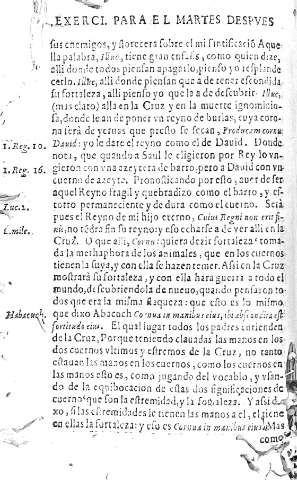 EXERCI. PARA EL MARTES DESPVES
sus enemigos, y florecera sobre el mi santificació Aque
lla palabra, Illuc, tiene gran enfasis, como quien dize,
alli donde todos piensan apagarlo, pienso yo resplande
cerlo. Illuc, alli donde piensan que a de tener escondida
su fortaleza, alli pienso yo que la a de descubrir. Illuc,
(mas claro) alla en la Cruz y en la muerte ignominio
sa, donde le an de poner vn reyno de burlas, cuya coro
na será de yeruas que presto se secan, Producam cornu
1. Reg. 10.
David: yo le dare el reyno como el de David. Donde
nota, que quando a Saul le eligieron por Rey lo vn-
1. Reg. 16.
gieron con vna azeytera de barro, pero a David con vn
cuerno de azeyte. Pronosticando por esso, auer de ser
aquel Reyno fragil y quebradizo como el barro, y es-
totro permanente y de dura como el cuerno. Será
Luc. 2.
pues el Reyno de mi hijo eterno, Cuius Regni non erit fi-
nis, no tédra fin su reyno; y eso echarse a de ver alli en la
Cruz. O que alli, Cornu: quiera dezir fortaleza: toma
da la methaphora de los animales, que en los cuernos
tienen la suya, y con ella se hazen temer. Assi en la Cruz
mostrará su fortaleza, y con ella hara guerra a todo el
mundo, descubriendola de nueuo, quando pensaron to
dos que era la misma flaqueza: que esto es lo mismo
Habacuch.
que dixo Abacuch Cornua in manibus eius, ibi abscondita est
fortitudo eius. El qual lugar todos los padres entienden
de la Cruz. Porque teniendo clauadas las manos en los
dos cuernos vltimos y estremos de la Cruz, no tanto
estauan las manos en los cuernos, como los cuernos en
las manos esto es, como jugando del vocablo, y vsan-
do de la equibocacion de estas dos significaciones de
cuernos que son la estremidad, y la fortaleza. Y assi di-
xo, si las estremidades le tienen las manos a el, el tiene
en ellas la fortaleza: y eso es Cornua in manibus eius. Mas
como